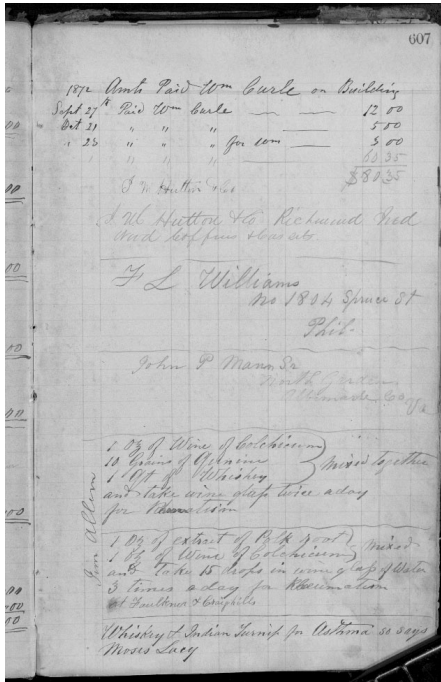 607
1872 Amts Paid Wm Carle on Building
Sept 27th Paid Wm Carle — — 12 00
Oct 21 " " " — 5 00
" 23 " " " for son — 3 00
" " " " 60 35
$80 35
J M Hutton & Co
J M Hutton & Co Richmond Ind
Wood Coffins & Caskets
F L Williams
No 1824 Spruce St
Phil.
John P Mann Sr
North Garden
Albemarle Co Va
1 Oz of Wine of Colchicum
10 Grains of Quinine
1 Pt of Whiskey
Mixed together
and take wine glass twice a day
for Rheumatism
Jim Allen
1 Oz of extract of Polk root
1 Oz of Wine of Colchicum
Mixed
and Take 15 drops in wine glass of Water
3 times a day for Rheumatism
at Faulkner & Craighills
Whiskey & Indian Turnip for Asthma so says
Moses Lacy